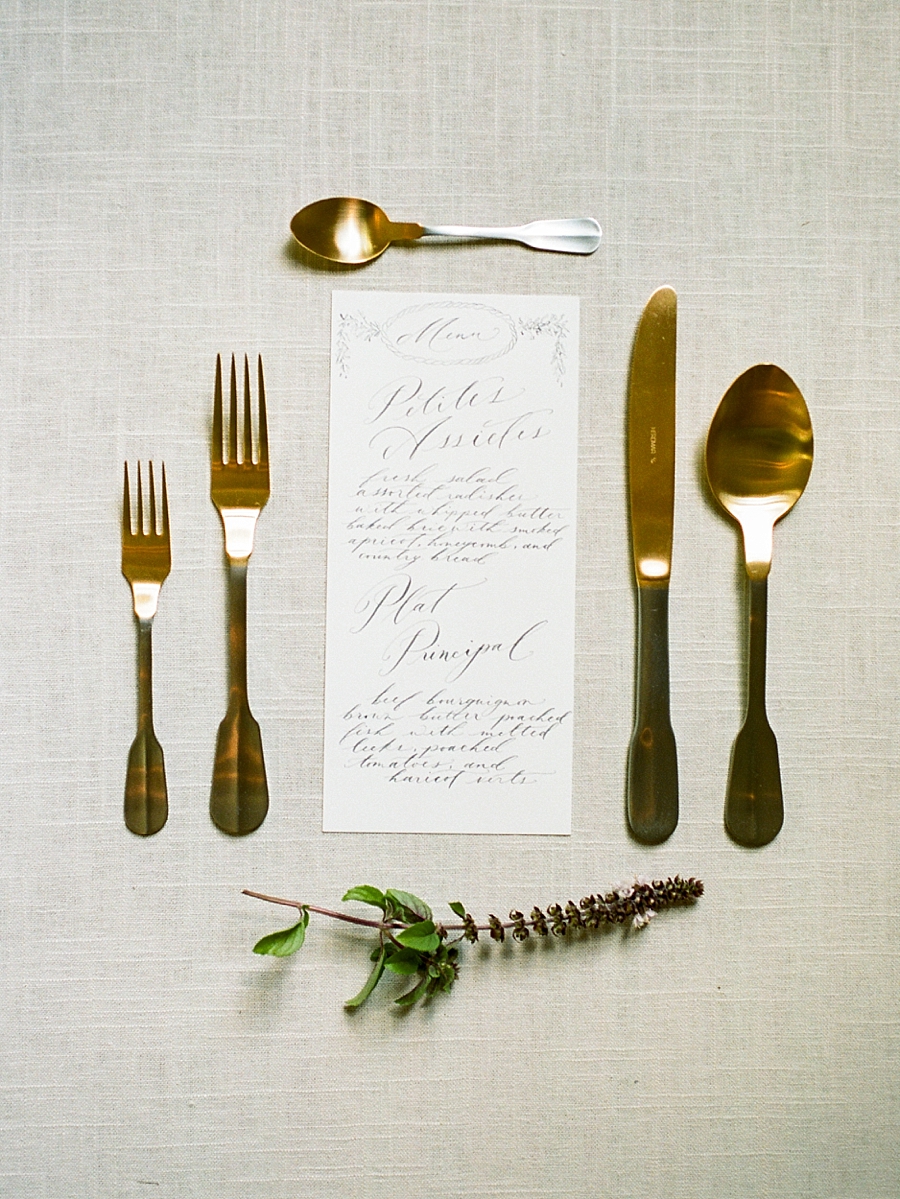 Menu
Petites
Assiettes
fresh salad
assorted radishes
with whipped butter
baked brie with smoked
apricot, honeycomb, and
country bread
Plat
Principal
beef bourguignon
brown butter poached
fish with melted
leeks, poached
tomatoes, and
haricot verts